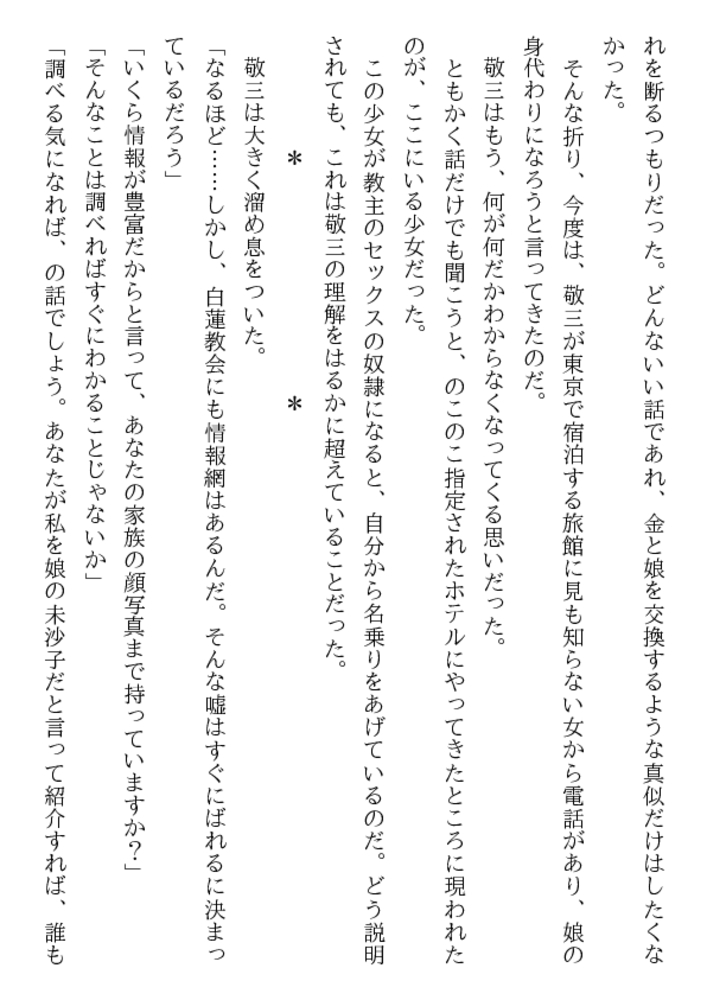 れを断るつもりだった。どんないい話であれ、金と娘を交換するような真似だけはしたくな
かった。
　そんな折り、今度は、敬三が東京で宿泊する旅館に見も知らない女から電話があり、娘の
身代わりになろうと言ってきたのだ。
　敬三はもう、何が何だかわからなくなってくる思いだった。
　ともかく話だけでも聞こうと、のこのこ指定されたホテルにやってきたところに現われた
のが、ここにいる少女だった。
　この少女が教主のセックスの奴隷になると、自分から名乗りをあげているのだ。どう説明
されても、これは敬三の理解をはるかに超えていることだった。
＊　＊
　敬三は大きく溜め息をついた。
「なるほど……しかし、白蓮教会にも情報網はあるんだ。そんな嘘はすぐにばれるに決まっ
ているだろう」
「いくら情報が豊富だからと言って、あなたの家族の顔写真まで持っていますか？」
「そんなことは調べればすぐにわかることじゃないか」
「調べる気になれば、の話でしょう。あなたが私を娘の未沙子だと言って紹介すれば、誰も